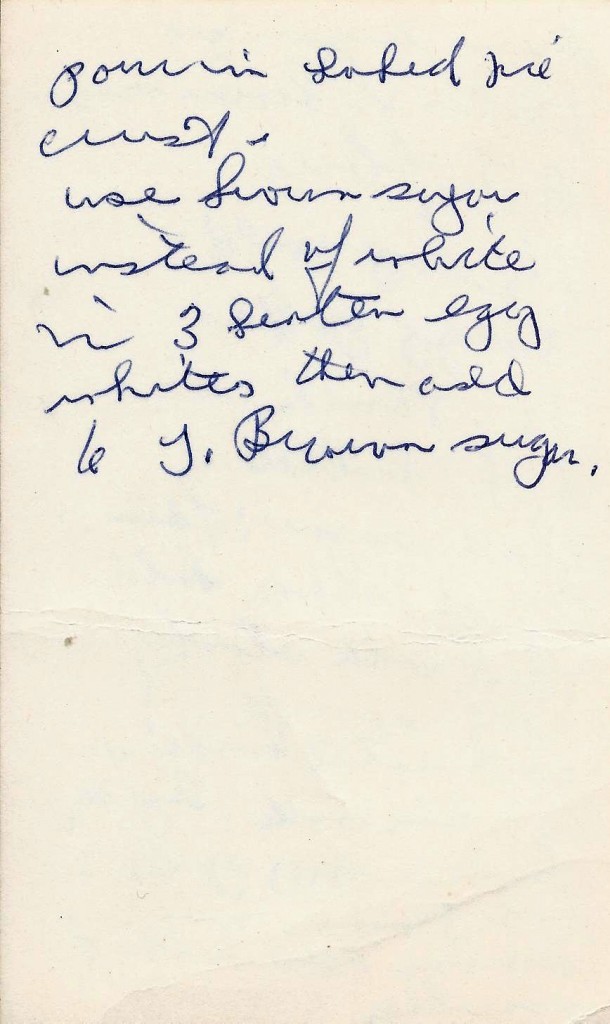 pour in baked pie
crust.
use brown sugar
instead of white
in 3 beaten egg
whites then add
6 T. Brown sugar.